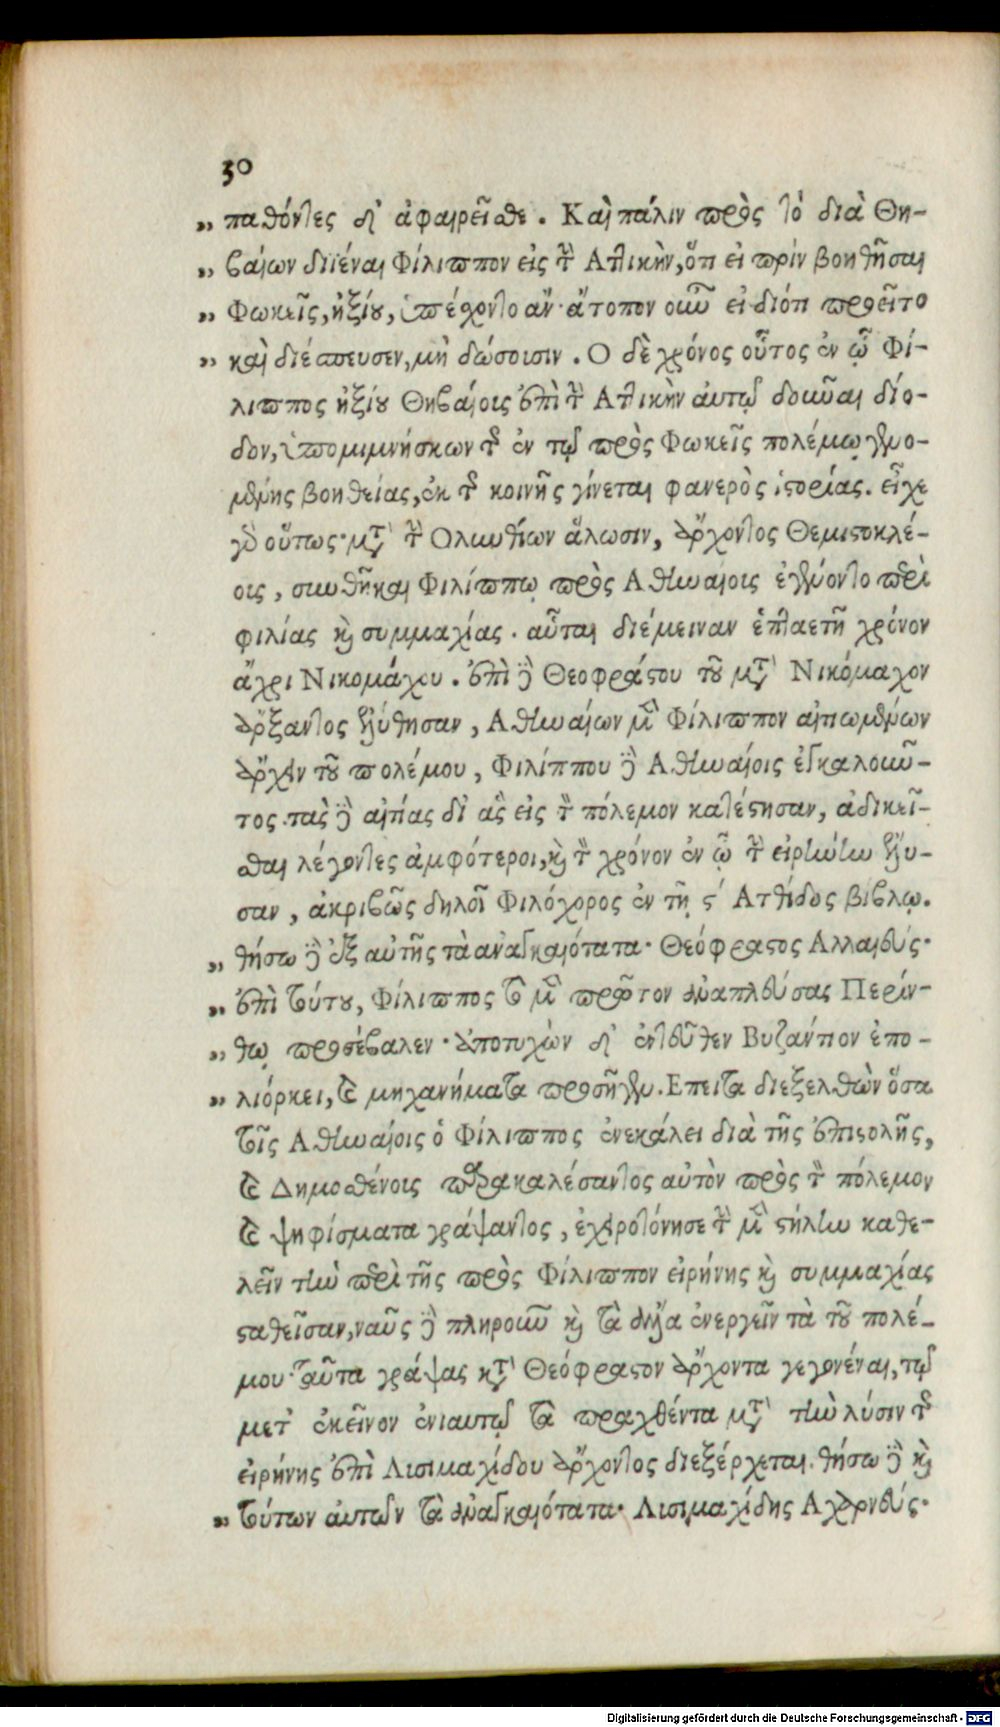 30
„ παθόντες δ' ἀφαιρεῖσθε. Καὶ πάλιν πρὸς τὸ διὰ Θη-
„ βαίων διϊέναι Φίλιππον εἰς τὴν Ἀττικὴν, ὅτι εἰ πρὶν βοηθῆσαι
„ Φωκεῖς, ἠξίου, ὑπέχοντο ἄν· ἄτοπον οὖν εἰ διότι προεῖτο
„ καὶ διέπευσεν, μὴ δώσοισιν. Ο δὲ χρόνος οὗτος ἐν ᾧ Φί-
λιππος ἠξίου Θηβαίοις ἐπὶ τὴν Ἀττικὴν αὐτῷ δοῦναι δίο-
δον, ὑπομιμνήσκων τῆς ἐν τῷ πρὸς Φωκεῖς πολέμῳ γενο-
μένης βοηθείας, ἐκ τῆς κοινῆς γίνεται φανερὸς ἱστορίας. εἶχε
γὰρ οὕτως· μετὰ τὴν Ὀλυνθίων ἅλωσιν, ἄρχοντος Θεμιστοκλέ-
οις, συνθῆκαι Φιλίππῳ πρὸς Ἀθηναίοις ἐγένοντο περὶ
φιλίας καὶ συμμαχίας. αὗται διέμειναν ἑπταετῆ χρόνον
ἄχρι Νικομάχου. ἐπὶ δὲ Θεοφράστου τοῦ μετὰ Νικόμαχον
ἄρξαντος ἐλύθησαν, Ἀθηναίων μὲν Φίλιππον αἰτιωμένων
ἄρχειν τοῦ πολέμου, Φιλίππου δὲ Ἀθηναίοις ἐγκαλοῦν-
τος. τὰς δὲ αἰτίας δι' ἃς εἰς τὸν πόλεμον κατέστησαν, ἀδικεῖ-
σθαι λέγοντες ἀμφότεροι, καὶ τὸν χρόνον ἐν ᾧ τὴν εἰρήνην ἔλυ-
σαν, ἀκριβῶς δηλοῖ Φιλόχορος ἐν τῇ ϛ' Ἀτθίδος βίβλῳ.
„ θήσω δὲ ἐξ αὐτῆς τὰ ἀναγκαιότατα· Θεόφραστος Αλλαιεύς·
„ ἐπὶ τούτου, Φίλιππος τὸ μὲν πρῶτον ἀναπλεύσας Περίν-
„ θῳ προσέβαλεν· ἀποτυχὼν δ' ἐντεῦθεν Βυζάντιον ἐπο-
„ λιόρκει, καὶ μηχανήματα προσῆγεν. Επειτα διεξελθὼν ὅσα
τοῖς Ἀθηναίοις ὁ Φίλιππος ἐνεκάλει διὰ τῆς ἐπιστολῆς,
καὶ Δημοσθένοις παρακαλέσαντος αὐτὸν πρὸς τὸν πόλεμον
καὶ ψηφίσματα γράψαντος, ἐχειροτόνησε τὴν μὲν στήλην καθε-
λεῖν τὴν περὶ τῆς πρὸς Φίλιππον εἰρήνης καὶ συμμαχίας
σταθεῖσαν, ναῦς δὲ πληροῦν καὶ τὰ ἄλλα ἐνεργεῖν τὰ τοῦ πολέ-
μου· ταῦτα γράψας κατὰ Θεόφραστον ἄρχοντα γεγονέναι, τῷ
μετ' ἐκεῖνον ἐνιαυτῷ τὰ πραχθέντα μετὰ τὴν λύσιν τῆς
εἰρήνης ἐπὶ Λισιμαχίδου ἄρχοντος διεξέρχεται. θήσω δὲ καὶ
„ τούτων αὐτῶν τὰ ἀναγκαιότατα· Λισιμαχίδης Αχαρνεύς·
Digitalisierung gefördert durch die Deutsche Forschungsgemeinschaft - DFG